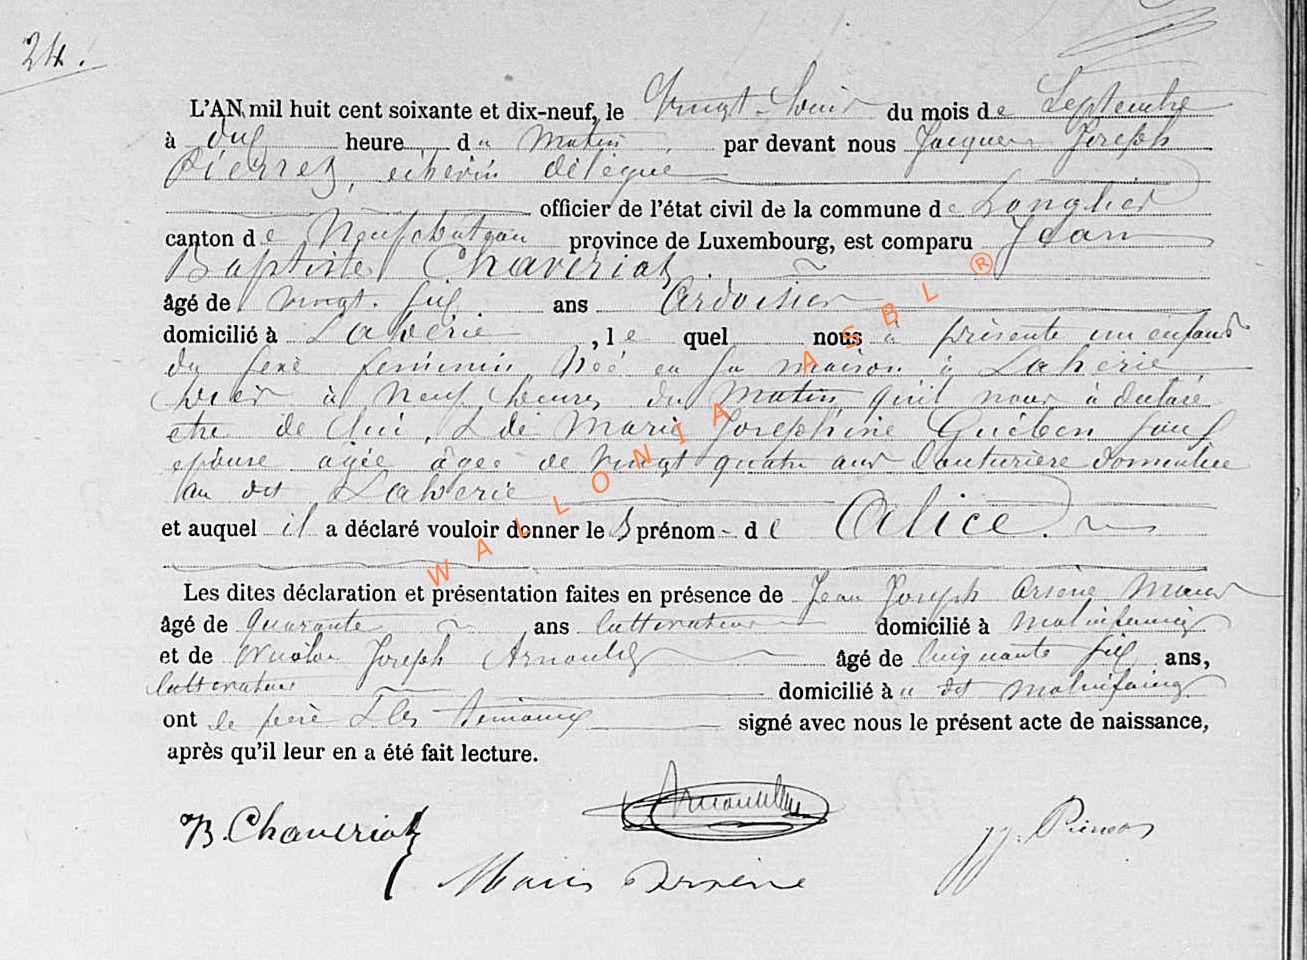 24.
L'AN mil huit cent soixante et dix-neuf, le Vingt-Trois du mois de Septembre
à dix heure du Matin par devant nous Jacques Joseph
Pierret, echevin délégué
officier de l'état civil de la commune de Longlier
canton de Neufchateau province de Luxembourg, est comparu Jean
Baptiste Chaveriat.
âgé de vingt-six ans Ardoisier
domicilié à Laherie, le quel nous a présenté un enfant
du sexe feminin Née en sa maison à Laherie
hier à neuf heures du Matin qu'il nous à declaré
etre de lui, & de Marie Josephine Gueben son
epouse agée âgee de vingt quatre ans Couturière domiciliée
au dit Laherie
et auquel il a déclaré vouloir donner le S prénom - de Alice.
Les dites déclaration et présentation faites en présence de Jean Joseph Arsène Maus
âgé de Quarante ans Cultivateur domicilié à Molinfaing
et de Nicolas Joseph Arnould âgé de Cinquante six ans,
Cultivateur domicilié à u dit Molinfaing
ont le père & les temoins signé avec nous le présent acte de naissance,
après qu'il leur en a été fait lecture.
JB. Chaveriat
Arnould
JJ. Pierret
Maus Arsène
WALLONIA ASBL ®